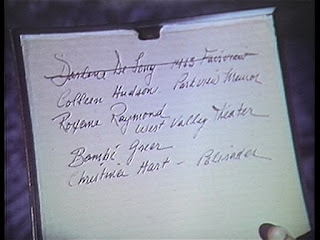 Darlene De Long 1465 Faircrest
Colleen Hudson Parkview Manor
Roxene Raymond
West Valley Theater
Bambi Greer
Christine Hart - Palisades